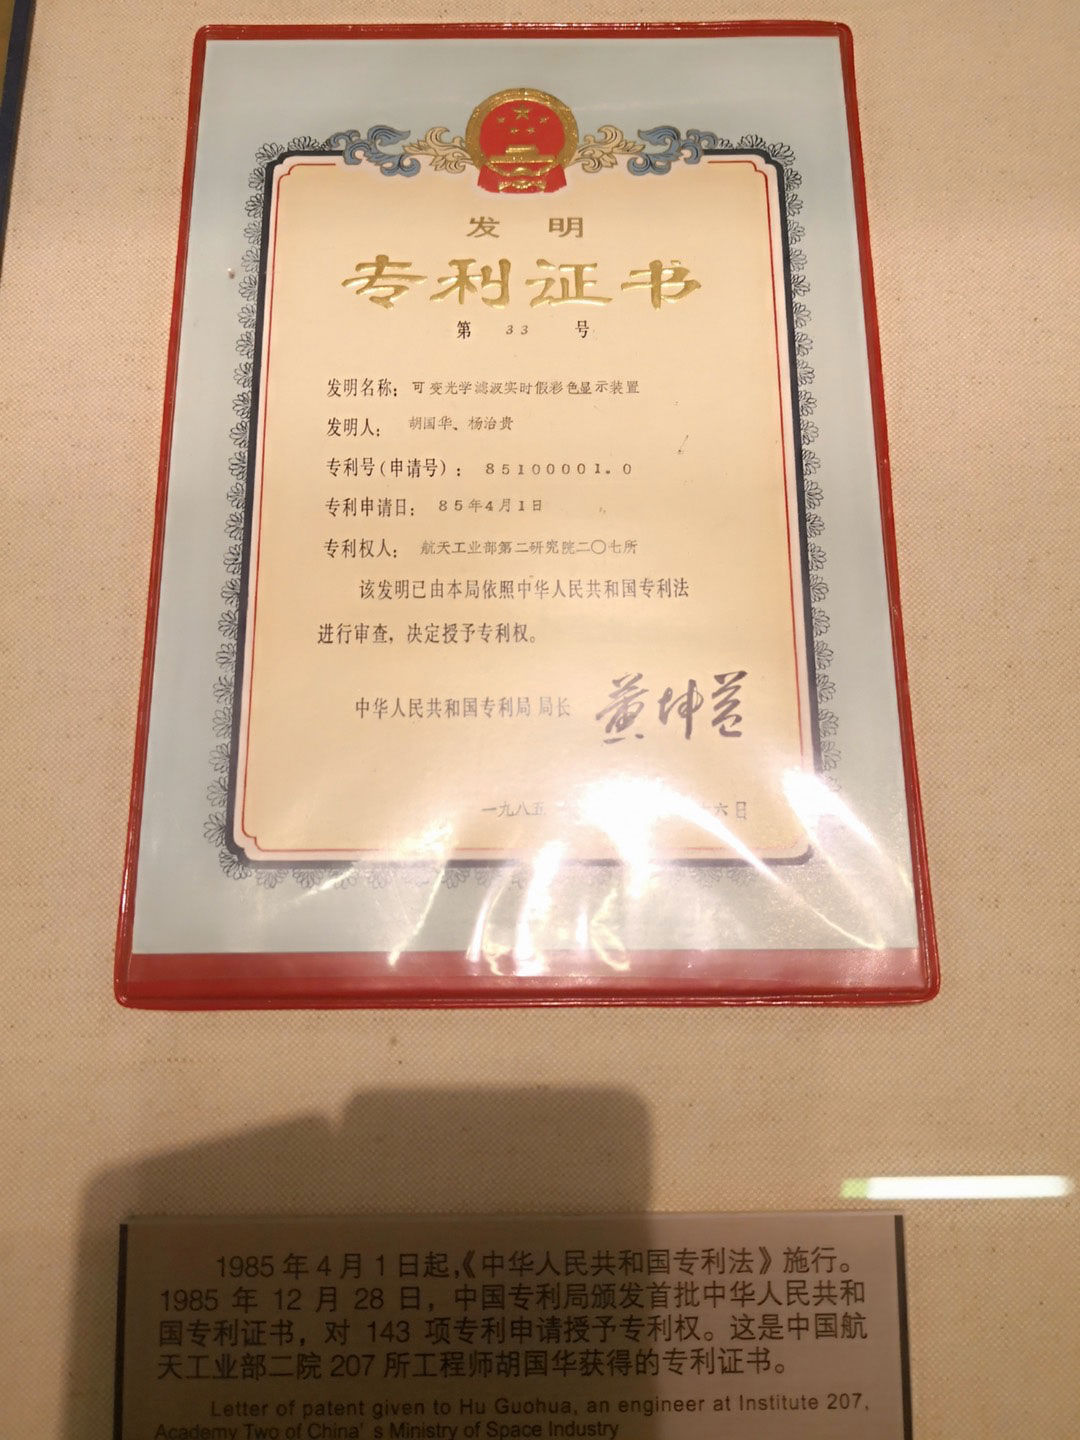 发 明
专利证书
第 33 号
发明名称：可变光学滤波实时假彩色显示装置
发明人：胡国华、杨治贵
专利号(申请号)：85100001.0
专利申请日：85年4月1日
专利权人：航天工业部第二研究院二〇七所
该发明已由本局依照中华人民共和国专利法
进行审查，决定授予专利权。
中华人民共和国专利局 局长 黄坤益
一九八五 六日
1985 年 4 月 1 日起，《中华人民共和国专利法》施行。
1985 年 12 月 28 日，中国专利局颁发首批中华人民共和
国专利证书，对 143 项专利申请授予专利权。这是中国航
天工业部二院 207 所工程师胡国华获得的专利证书。
Letter of patent given to Hu Guohua, an engineer at Institute 207,
Academy Two of China' s Ministry of Space Industry